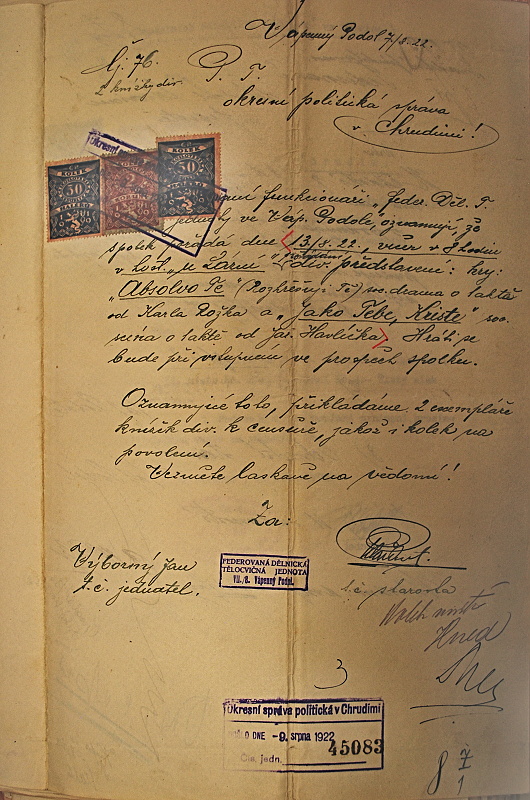 Vápenný Podol 7/8. 22.
Čj. 76
P. T.
2 knížky div.
okresní politická správa
v Chrudimi!
Okresní
KOLEK
KOLEK
KOLEK
50
50
funkcionáři "Feder. Děl. T.
jednoty ve Váp. Podole", oznamují, že
spolek pořádá dne 13/8. 22., večer v 8 hodin
v host. "u
div. představení: hry:
"Absolvo Te" (Rozhřešuji Tě) soc. drama o 1 aktě
od Karla Rožka a "Jako Tebe, Kriste" soc.
scéna o 1 aktě od Jar. Havlíčka. Hráti se
bude při vstupném ve prospěch spolku.
Oznamujíce toto, přikládáme 2 exempláře
knížek div. k censuře, jakož i kolek na
povolení.
Vezměte laskavě na vědomí!
Za:
Výborný Jan
t. č. jednatel.
FEDEROVANÁ DĚLNICKÁ
TĚLOCVIČNÁ JEDNOTA
Vápenný Podol.
t. č. starosta
3
Okresní správa politická v Chrudimi
DOŠLO DNE -9. srpna 1922
45083
Čís. jedn.
8